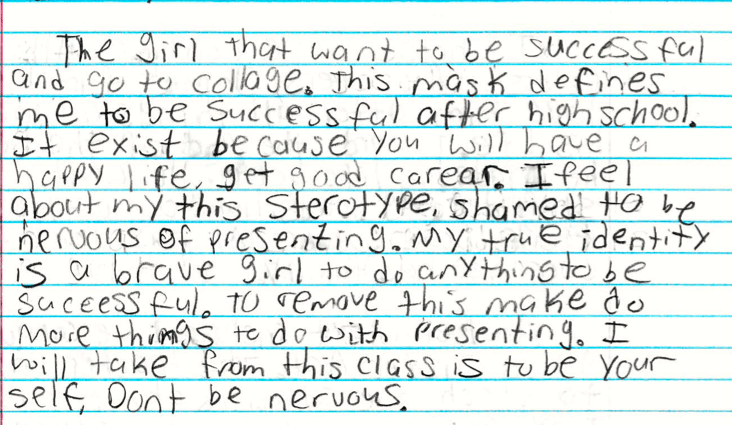 The girl that want to be successful
and go to collage. This mask defines
me to be successful after highschool.
It exist because you will have a
happy life, get good carear. I feel
about my this sterotype, shamed to be
nervous of presenting. My true identity
is a brave girl to do anything to be
successful. to remove this make do
more things to do with presenting. I
will take from this class is to be your
self, Dont be nervous.